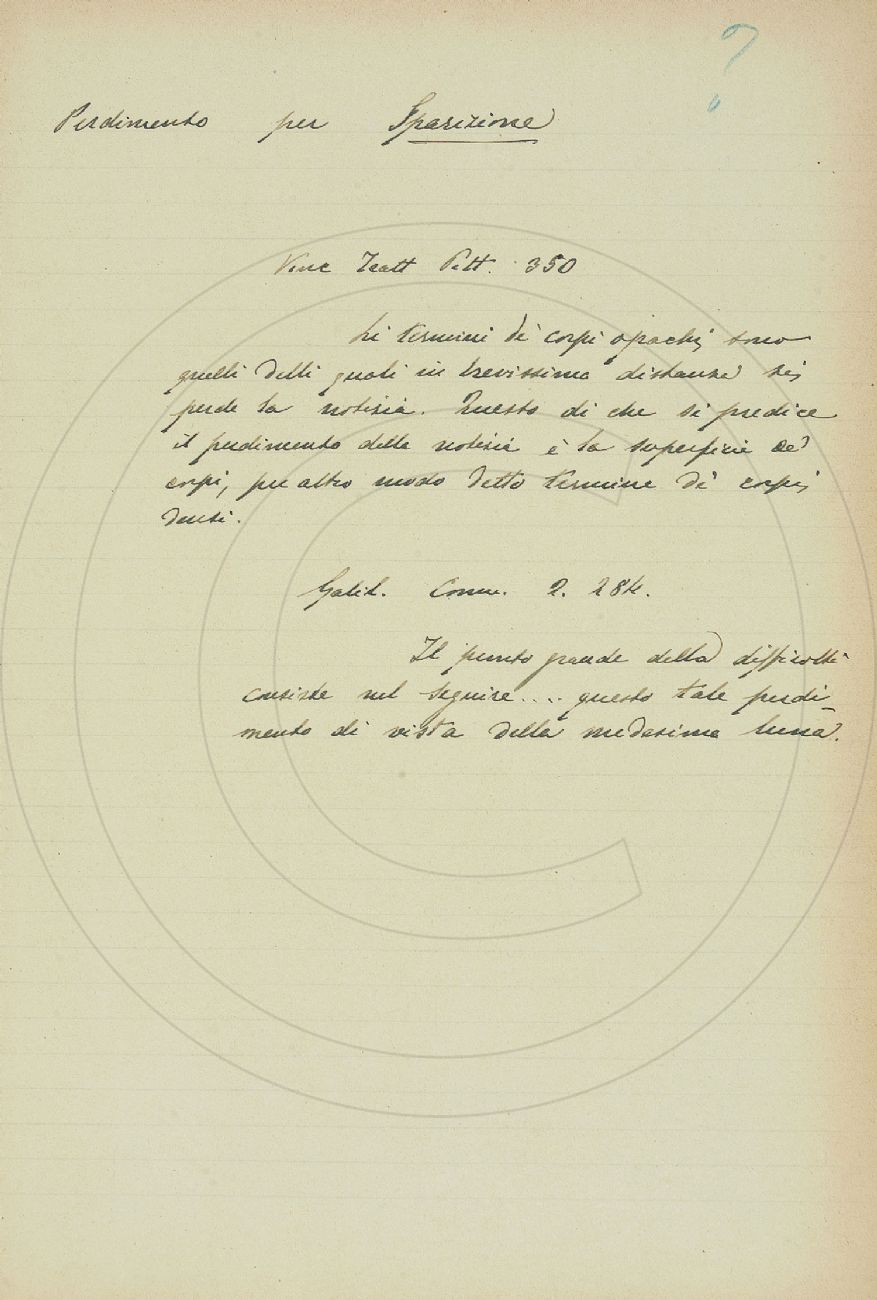 ?
Perdimento per Sparizione
Vinc Tratt Pitt. 350
Li termini de' corpi opachi sono
quelli delli quali in brevissima distanza si
perde la notizia. Questo di che si predice
il perdimento della notizia è la superficie de'
corpi, per altro modo detto termine de' corpi
densi.
Galil. Comm. 2. 284.
Il punto grande della difficoltà
consiste nel seguire.... questo tale perdi
mento di vista della medesima luna.